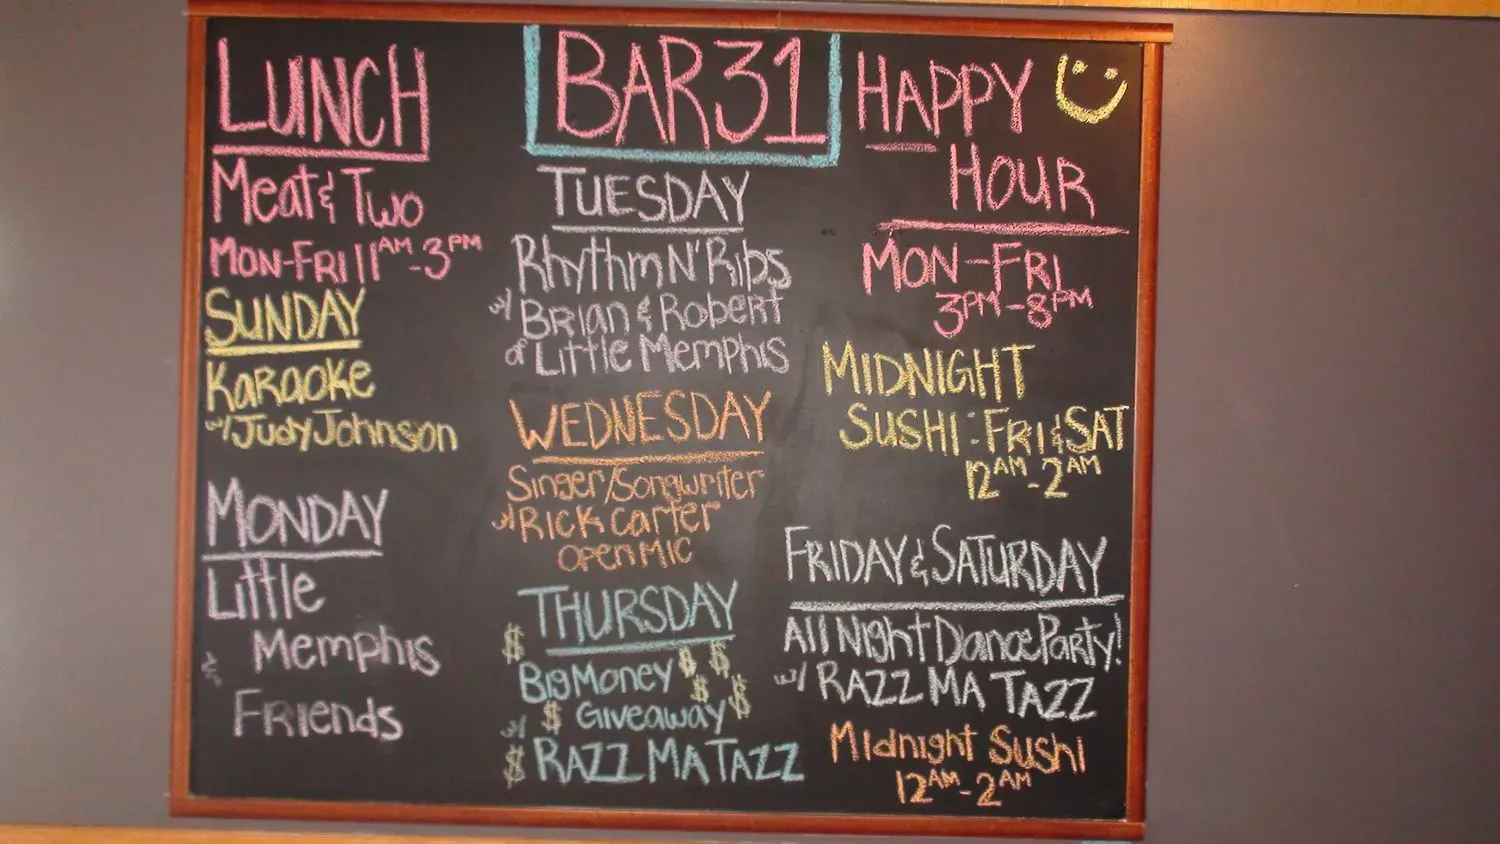 LUNCH
Meat & Two
MON-FRI 11AM-3PM
SUNDAY
KARAOKE
w/ Judy Johnson
MONDAY
Little
Memphis
& Friends
BAR31
TUESDAY
Rhythm N' Ribs
w/ Brian & Robert
of Little Memphis
WEDNESDAY
Singer/Songwriter
w/ Rick Carter
OPEN MIC
THURSDAY
$ Big Money $ $
w/ $ Giveaway $ $
$ RAZZ MA TAZZ
HAPPY
HOUR
MON-FRI
3PM-8PM
MIDNIGHT
SUSHI: FRI & SAT
12AM-2AM
FRIDAY & SATURDAY
All Night Dance Party!
w/ RAZZ MA TAZZ
Midnight Sushi
12AM-2AM